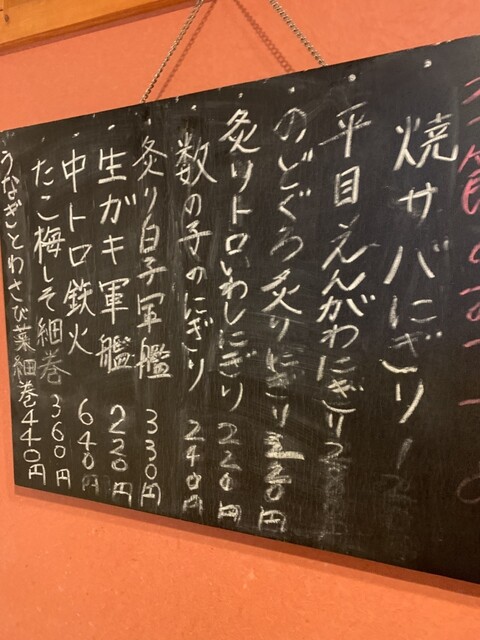 焼サバにぎり
平目えんがわにぎり
のどぐろ炙りにぎり 320円
炙りトロいわしにぎり 220円
数の子のにぎり 240円
炙り白子軍艦 330円
生ガキ軍艦 220円
中トロ鉄火 640円
たこ梅しそ細巻 360円
うなぎとわさび葉細巻 440円